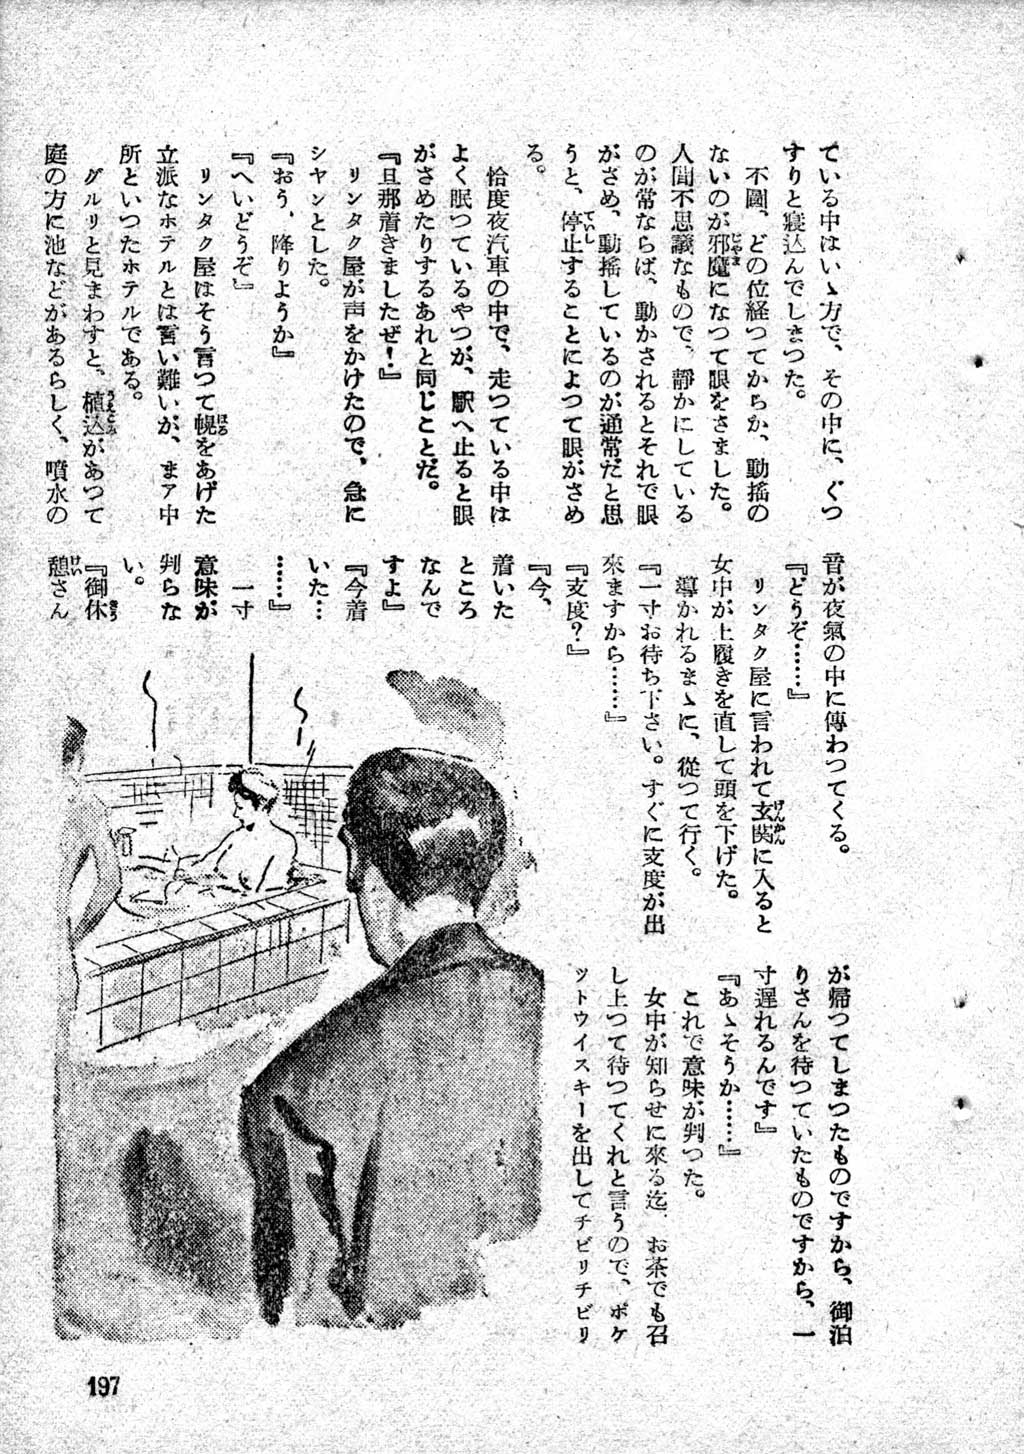 ている中はいゝ方で、その中に、ぐつ
すりと寝込んでしまつた。
不圖、どの位経つてからか、動揺の
ないのが邪魔になつて眼をさました。
人間不思議なもので、靜かにしている
のが常ならば、動かされるとそれで眼
がさめ、動揺しているのが通常だと思
うと、停止することによつて眼がさめ
る。
恰度夜汽車の中で、走つている中は
よく眠つているやつが、駅へ止ると眼
がさめたりするあれと同じことだ。
『旦那着きましたぜ！』
リンタク屋が声をかけたので、急に
シヤンとした。
『おう、降りようか』
『へいどうぞ』
リンタク屋はそう言つて幌をあげた
立派なホテルとは言い難いが、まァ中
所といつたホテルである。
グルリと見まわすと、植込があつて
庭の方に池などがあるらしく、噴水の
音が夜氣の中に傳わつてくる。
『どうぞ……』
リンタク屋に言われて玄関に入ると
女中が上履きを直して頭を下げた。
導かれるまゝに、從つて行く。
『一寸お待ち下さい。すぐに支度が出
來ますから……』
『支度？』
『今、
着いた
ところ
なんで
すよ』
『今着
いた…
……』
一寸
意味が
判らな
い。
『御休
憩さん
が帰つてしまつたものですから、御泊
りさんを待つていたものですから、一
寸遅れるんです』
『あゝそうか……』
これで意味が判つた。
女中が知らせに來る迄、お茶でも召
し上つて待つてくれと言うので、ポケ
ツトウイスキーを出してチビリチビリ
197